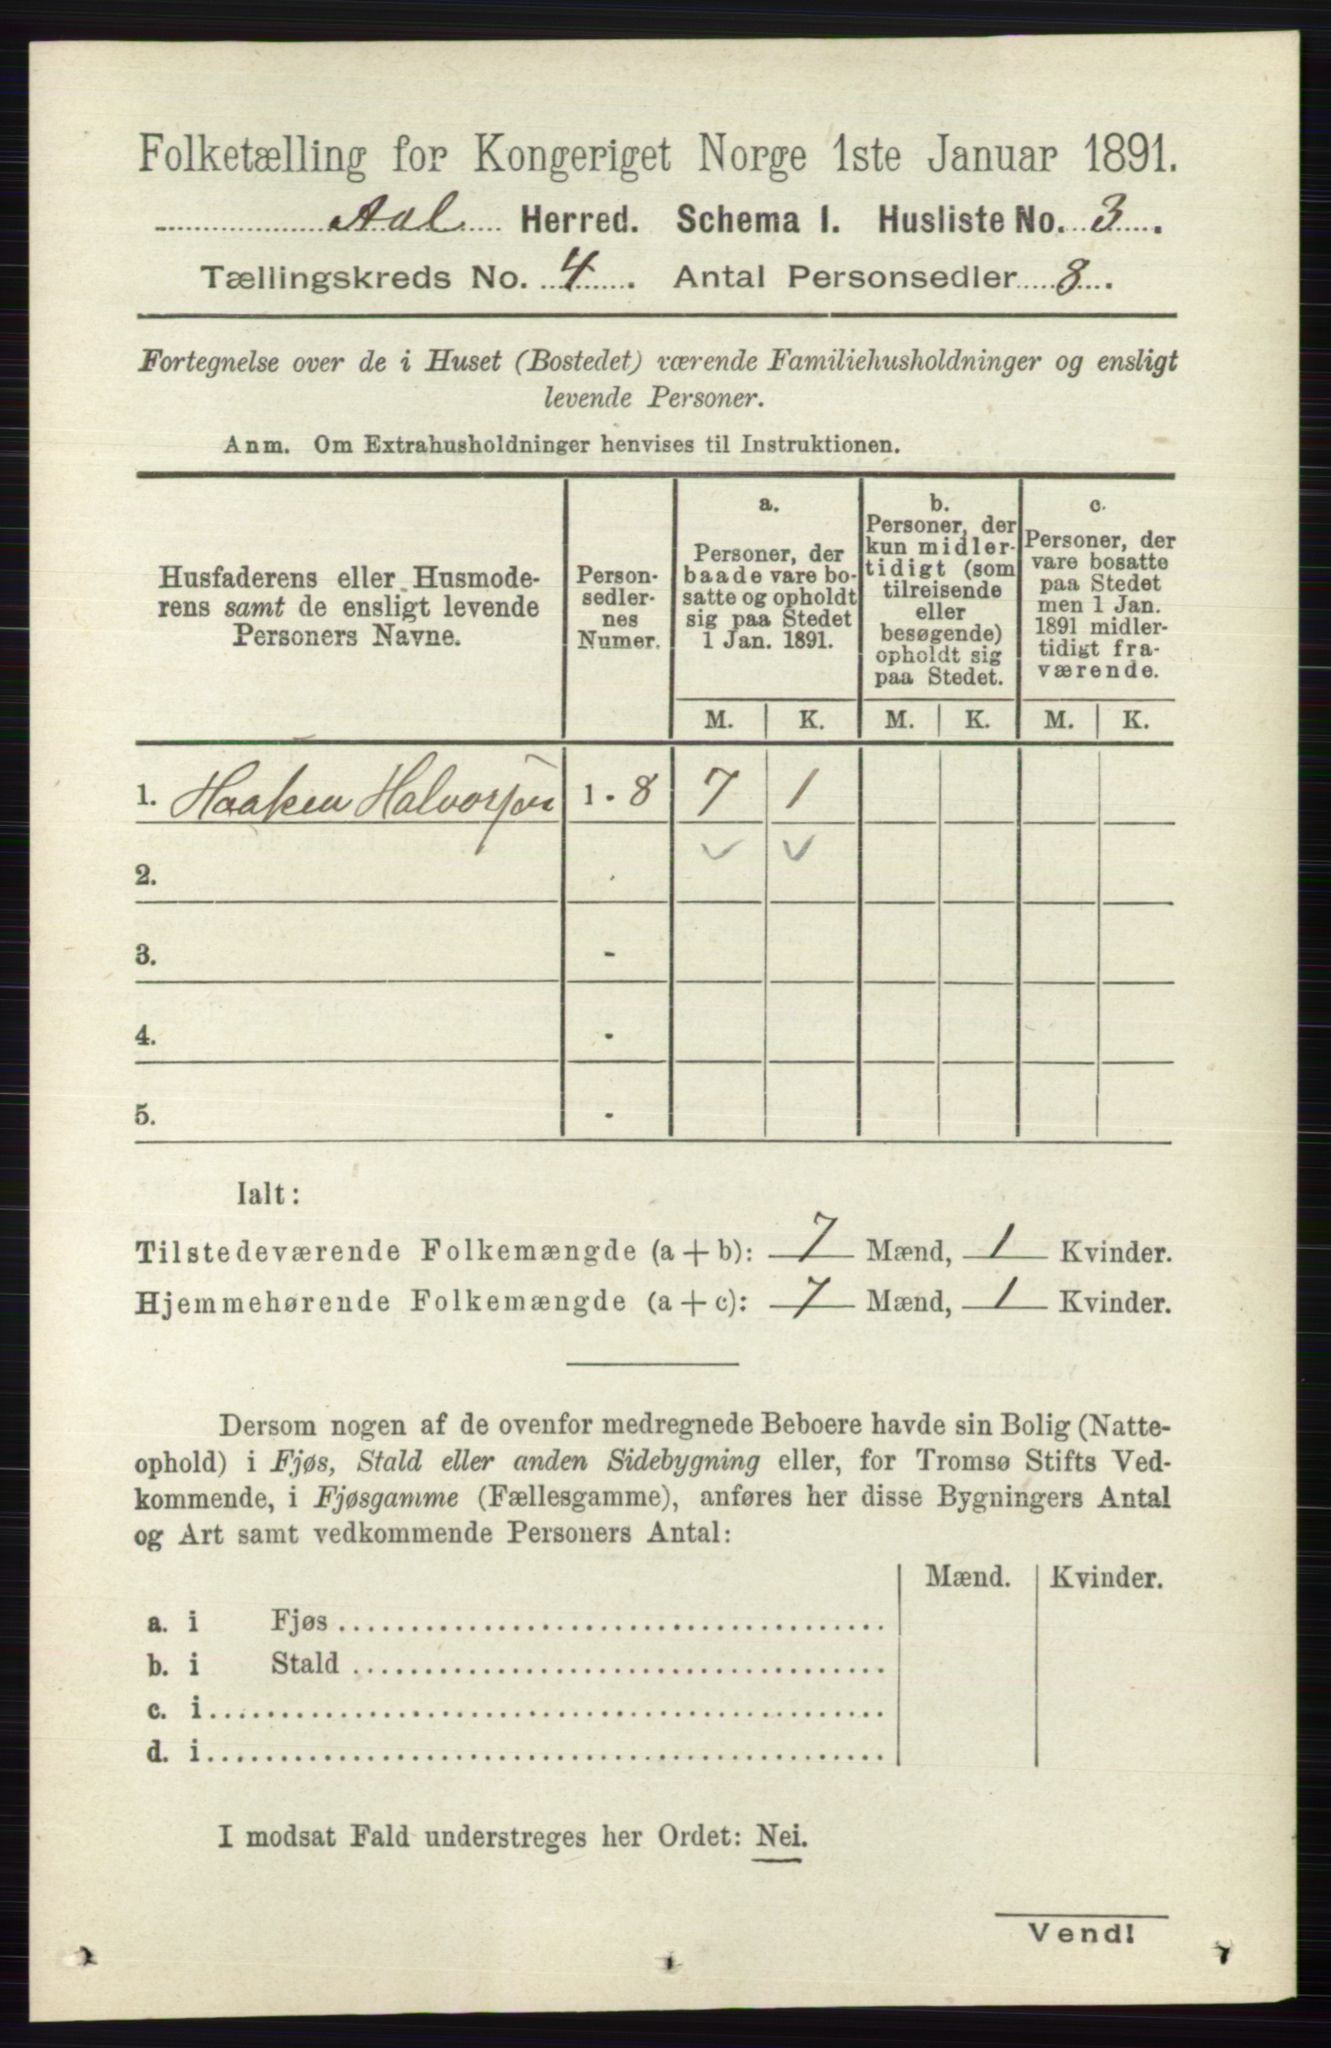 Folketælling for Kongeriget Norge 1ste Januar 1891.
Aal Herred. Schema I. Husliste No. 3.
Tællingskreds No. 4. Antal Personsedler 8.
Fortegnelse over de i Huset (Bostedet) værende Familiehusholdninger og ensligt
levende Personer.
Anm. Om Extrahusholdninger henvises til Instruktionen.
Husfaderens eller Husmode-
rens samt de ensligt levende
Personers Navne.
Person-
sedler-
nes
Numer.
a.
Personer, der
baade vare bo-
satte og opholdt
sig paa Stedet
1 Jan. 1891.
b.
Personer, der
kun midler-
tidigt (som
tilreisende
eller
besøgende)
opholdt sig
paa Stedet.
c.
Personer, der
vare bosatte
paa Stedet
men 1 Jan.
1891 midler-
tidigt fra-
værende.
M. K. M. K. M. K.
1. Haaken Halvorsen 1 - 8 7 1
2. -
3. -
4. -
5. -
Ialt:
Tilstedeværende Folkemængde (a + b): 7 Mænd, 1 Kvinder.
Hjemmehørende Folkemængde (a + c): 7 Mænd, 1 Kvinder.
Dersom nogen af de ovenfor medregnede Beboere havde sin Bolig (Natte-
ophold) i Fjøs, Stald eller anden Sidebygning eller, for Tromsø Stifts Ved-
kommende, i Fjøsgamme (Fællesgamme), anføres her disse Bygningers Antal
og Art samt vedkommende Personers Antal:
Mænd. Kvinder.
a. i Fjøs
b. i Stald
c. i
d. i
I modsat Fald understreges her Ordet: Nei.
Vend!